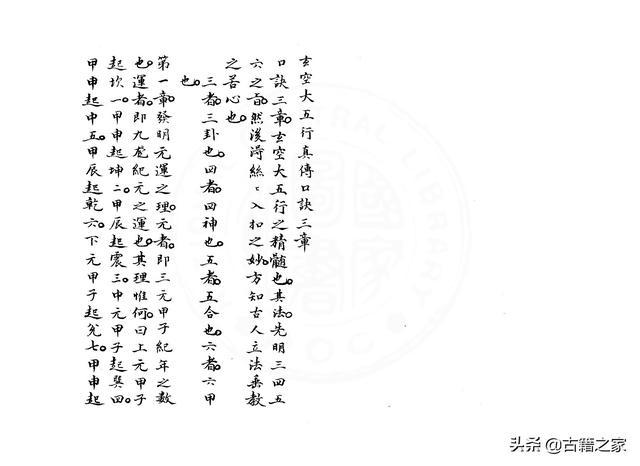 玄空大五行真傳口訣三章
口訣三章。玄空大五行之精髓也。其法先明三四五
六之旨。然後得絲絲入扣之妙。方知古人立法垂教
之苦心也。
三者。三卦也。四者。四神也。五者。五合也。六者。六甲
也。
第一章。發明元運之理。元者。即三元甲子紀年之數
也。運者。即九宮紀元之運也。其理惟何。曰上元甲子
起坎一。甲申起坤二。甲辰起震三。中元甲子起巽四。
甲申起中五。甲辰起乾六。下元甲子起兌七。甲申起
头条 @古籍之家